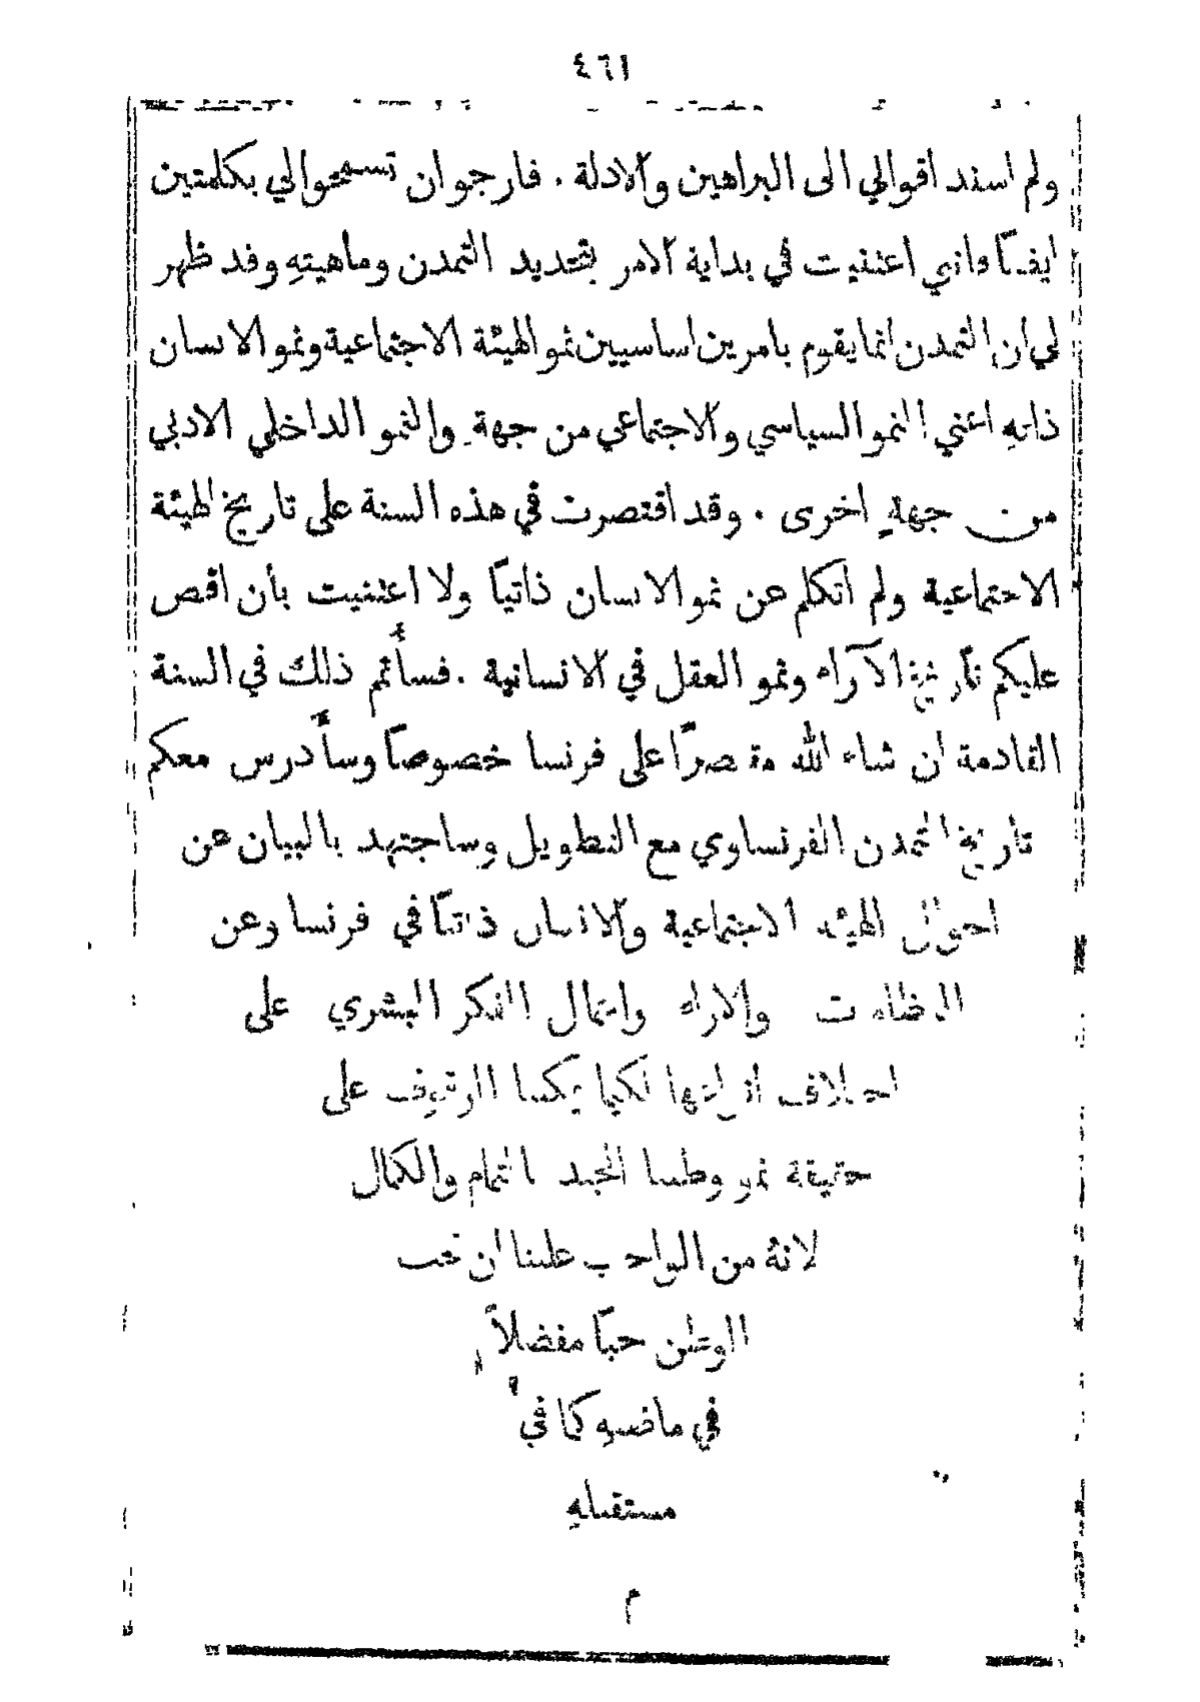 ٤٦١
ولم اسند اقوالي الى البراهين والادلة . فارجوان تسمحوالي بكلمتين
ايضاً فانني اعتنيت في بداية الامر بتحديد التمدن وماهيتهِ وقد ظهر
لي ان التمدن انما يقوم بامرين اساسيين نمو الهيئة الاجتماعية ونمو الانسان
ذاتهِ اعني النمو السياسي والاجتماعي من جهة والنمو الداخلي الادبي
من جهةٍ اخرى . وقد اقتصرت في هذه السنة على تاريخ الهيئة
الاجتماعية ولم اتكلم عن نمو الانسان ذاتيًا ولا اعتنيت بأن اقص
عليكم تأريخ الآراء ونمو العقل في الانسانية . فسأتمم ذلك في السنة
القادمة ان شاء الله مقتصرًا على فرنسا خصوصًا وسأدرس معكم
تأريخ التمدن الفرنساوي مع التطويل وساجتهد بالبيان عن
احوال الهيئة الاجتماعية والانسان ذاتيًا في فرنسا وعن
النظامات والاراء واعمال الفكر البشري على
اختلاف انواعها لكيما يمكننا الوقوف على
حقيقة نمو وطننا المجيد بالتمام والكمال
لانهُ من الواجب علينا ان نحب
الوطن حبًا مفضلاً
في ماضيهِ كما في
مستقبلهِ
م